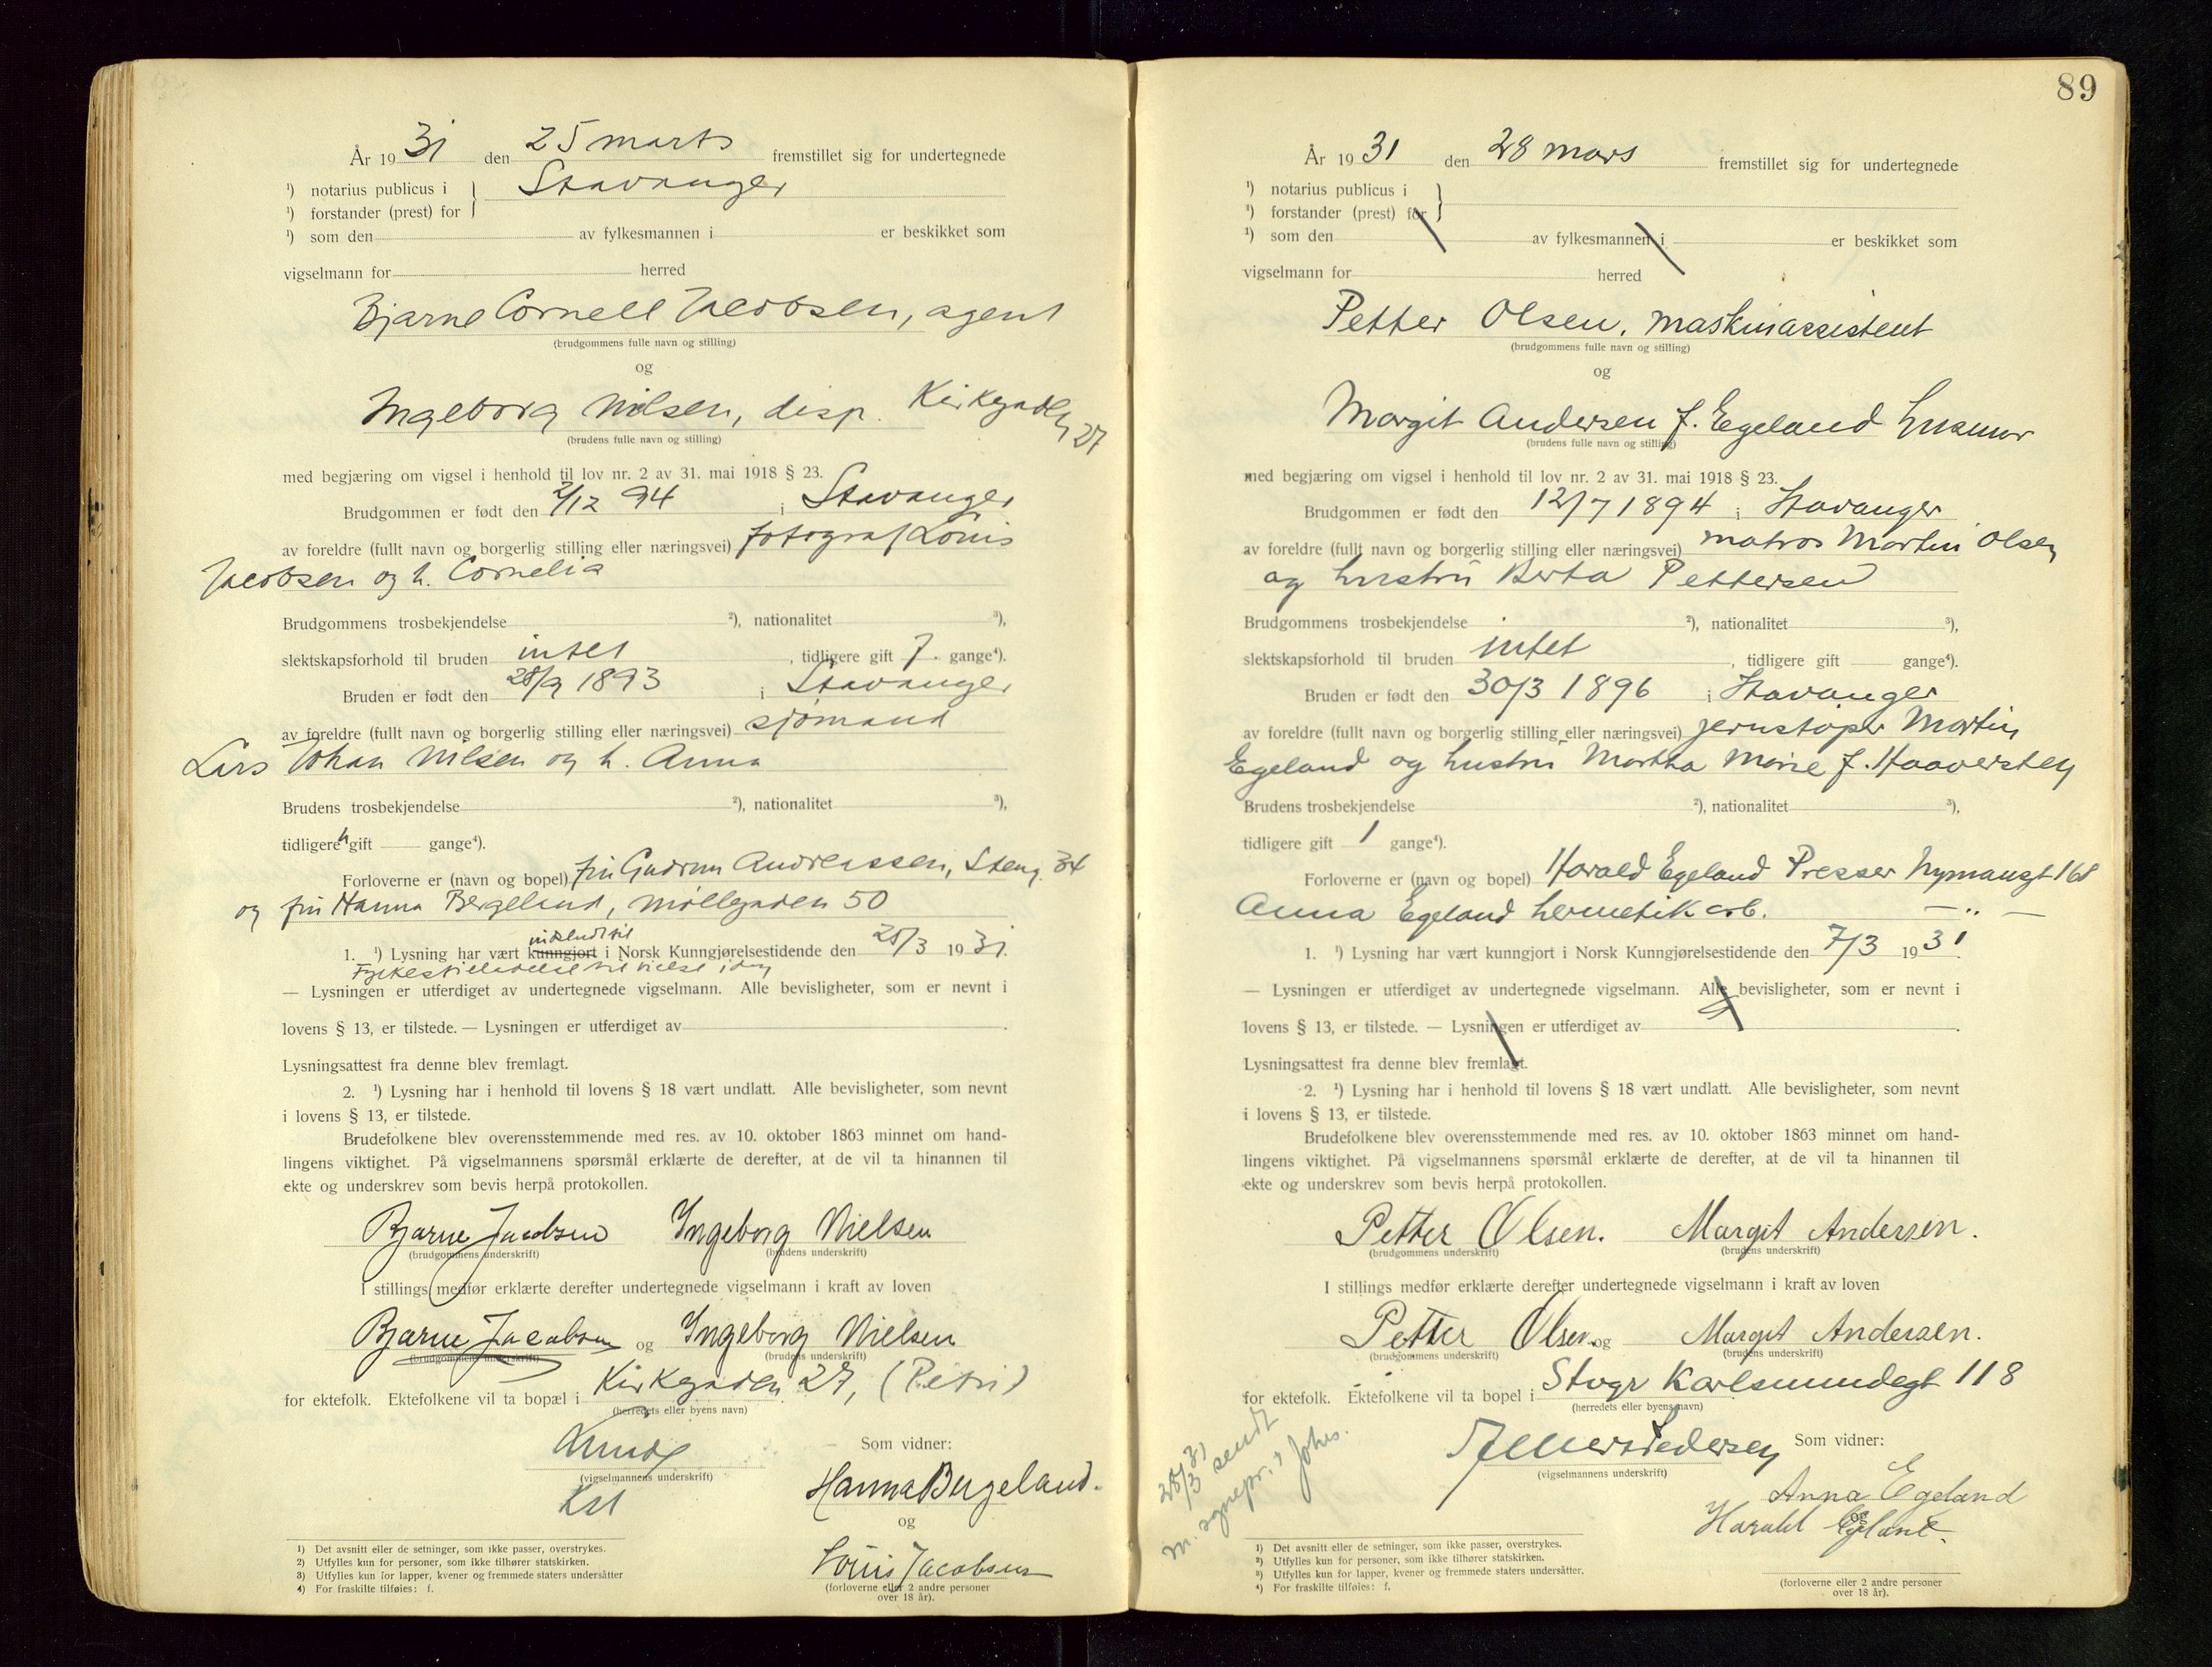 År 19 31 den 25 marts fremstillet sig for undertegnede
¹) notarius publicus i } Stavanger
¹) forstander (prest) for
¹) som den av fylkesmannen i er beskikket som
vigselmann for herred
Bjarne Cornell Jacobsen, agent
(brudgommens fulle navn og stilling)
og
Ingeborg Nilsen, disp. Kirkegaden 27
(brudens fulle navn og stilling)
med begjæring om vigsel i henhold til lov nr. 2 av 31. mai 1918 § 23.
Brudgommen er født den 2/12 94 i Stavanger
av foreldre (fullt navn og borgerlig stilling eller næringsvei) fotograf Louis
Jacobsen og h. Cornelia
Brudgommens trosbekjendelse ²), nationalitet ³),
slektskapsforhold til bruden intet , tidligere gift gange⁴).
Bruden er født den 28/9 1893 i Stavanger
av foreldre (fullt navn og borgerlig stilling eller næringsvei) sjømand
Lars Johan Nilsen og h. Anna
Brudens trosbekjendelse ²), nationalitet ³),
tidligere gift gange⁴).
Forloverne er (navn og bopel) fru Gudrun Andreassen, Steng. 34
og fru Hanna Bergeland, Møllegaden 50
indsendt til
1. ¹) Lysning har vært kunngjort i Norsk Kunngjørelsestidende den 25/3 19 31.
Fylkestilladelse til vielse idag
— Lysningen er utferdiget av undertegnede vigselmann. Alle bevisligheter, som er nevnt i
lovens § 13, er tilstede. — Lysningen er utferdiget av .
Lysningsattest fra denne blev fremlagt.
2. ¹) Lysning har i henhold til lovens § 18 vært undlatt. Alle bevisligheter, som nevnt
i lovens § 13, er tilstede.
Brudefolkene blev overensstemmende med res. av 10. oktober 1863 minnet om hand-
lingens viktighet. På vigselmannens spørsmål erklærte de derefter, at de vil ta hinannen til
ekte og underskrev som bevis herpå protokollen.
Bjarne Jacobsen Ingeborg Nielsen
(brudgommens underskrift) (brudens underskrift)
I stillings medfør erklærte derefter undertegnede vigselmann i kraft av loven
Bjarne Jacobsen og Ingeborg Nielsen
(brudgommens underskrift) (brudens underskrift)
for ektefolk. Ektefolkene vil ta bopæl i Kirkegaden 27, (Petri)
(herredets eller byens navn)
Som vidner:
(vigselmannens underskrift)
Hanna Bergeland.
og
Louis Jacobsen
(forloverne eller 2 andre personer
over 18 år).
1) Det avsnitt eller de setninger, som ikke passer, overstrykes.
2) Utfylles kun for personer, som ikke tilhører statskirken.
3) Utfylles kun for lapper, kvener og fremmede staters undersåtter
4) For fraskilte tilføies: f.
89
År 19 31 den 28 mars fremstillet sig for undertegnede
¹) notarius publicus i }
¹) forstander (prest) for
¹) som den av fylkesmannen i er beskikket som
vigselmann for herred
Petter Olsen, maskinassistent
(brudgommens fulle navn og stilling)
og
Margit Andersen f. Egeland husmor
(brudens fulle navn og stilling)
med begjæring om vigsel i henhold til lov nr. 2 av 31. mai 1918 § 23.
Brudgommen er født den 12/7 1894 i Stavanger
av foreldre (fullt navn og borgerlig stilling eller næringsvei) matros Martin Olsen
og hustru Berta Pettersen
Brudgommens trosbekjendelse ²), nationalitet ³),
slektskapsforhold til bruden intet , tidligere gift — gange⁴).
Bruden er født den 30/3 1896 i Stavanger
av foreldre (fullt navn og borgerlig stilling eller næringsvei) jernstøper Martin
Egeland og hustru Martha Marie f. Haaverstey
Brudens trosbekjendelse ²), nationalitet ³),
tidligere gift 1 gange⁴).
Forloverne er (navn og bopel) Harald Egeland Presser Nymansgt 168
Anna Egeland hermetikarb. — „ —
1. ¹) Lysning har vært kunngjort i Norsk Kunngjørelsestidende den 7/3 19 31.
— Lysningen er utferdiget av undertegnede vigselmann. Alle bevisligheter, som er nevnt i
lovens § 13, er tilstede. — Lysningen er utferdiget av .
Lysningsattest fra denne blev fremlagt.
2. ¹) Lysning har i henhold til lovens § 18 vært undlatt. Alle bevisligheter, som nevnt
i lovens § 13, er tilstede.
Brudefolkene blev overensstemmende med res. av 10. oktober 1863 minnet om hand-
lingens viktighet. På vigselmannens spørsmål erklærte de derefter, at de vil ta hinannen til
ekte og underskrev som bevis herpå protokollen.
Petter Olsen. Margit Andersen.
(brudgommens underskrift) (brudens underskrift)
I stillings medfør erklærte derefter undertegnede vigselmann i kraft av loven
Petter Olsen og Margit Andersen.
(brudgommens underskrift) (brudens underskrift)
for ektefolk. Ektefolkene vil ta bopel i Stvgr Karlsmindegt 118
(herredets eller byens navn)
28/3 31 sendt
m. sognepr. i Johs.
Som vidner:
(vigselmannens underskrift)
Anna Egeland
og
Harald Egeland
(forloverne eller 2 andre personer
over 18 år).
¹) Det avsnitt eller de setninger, som ikke passer, overstrykes.
²) Utfylles kun for personer, som ikke tilhører statskirken.
³) Utfylles kun for lapper, kvener og fremmede staters undersåtter.
⁴) For fraskilte tilføies: f.